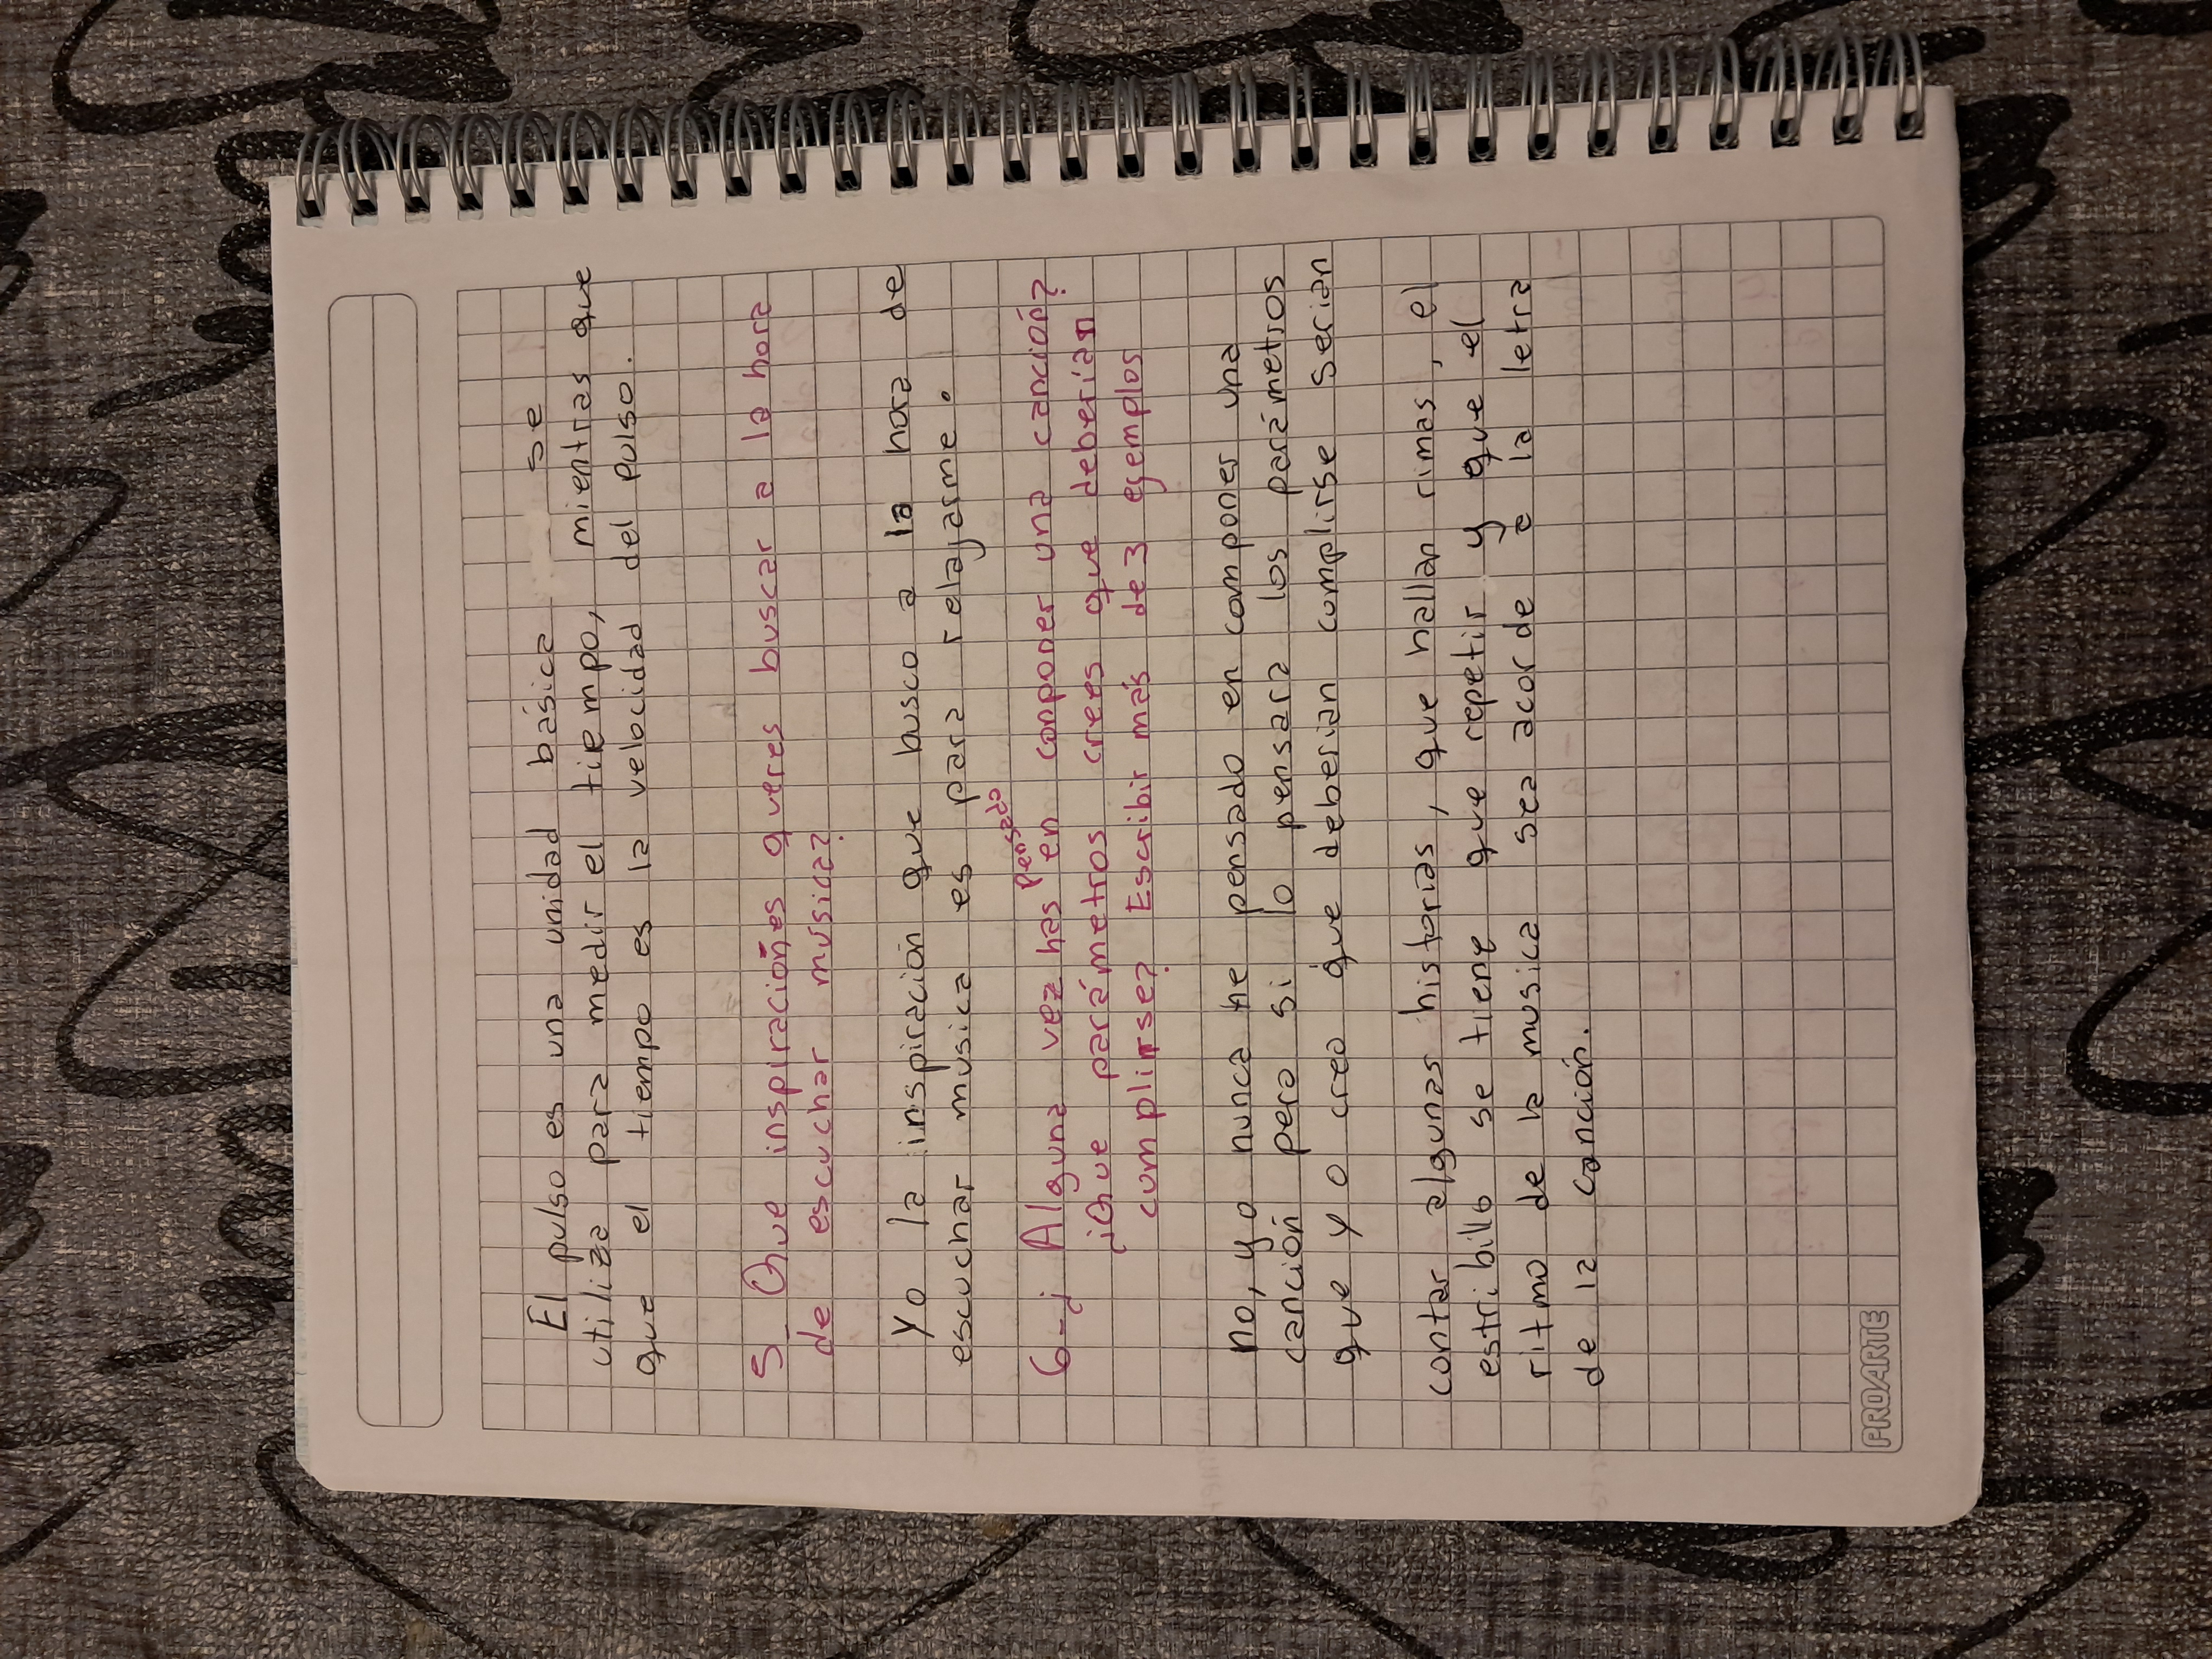 El pulso es una unidad básica se
utiliza para medir el tiempo, mientras que
que el tiempo es la velocidad del pulso.
5_ Que inspiraciones queres buscar a la hora
de escuchar musica?
Yo la inspiración que busco a la hora de
escuchar musica es para relajarme.
6-¿ Alguna vez has pensado en conponer una canción?
¿Que parámetros crees que deberían
cumplirse? Escribir más de 3 egemplos
no, yo nunca he pensado en componer una
canción pero si lo pensara los parámetros
que yo creo que deberian cumplirse serian
contar algunas historias, que hallan rimas, el
estribillo se tiene que repetir y que el
ritmo de la musica sea acorde a la letra
de la canción.
PROARTE